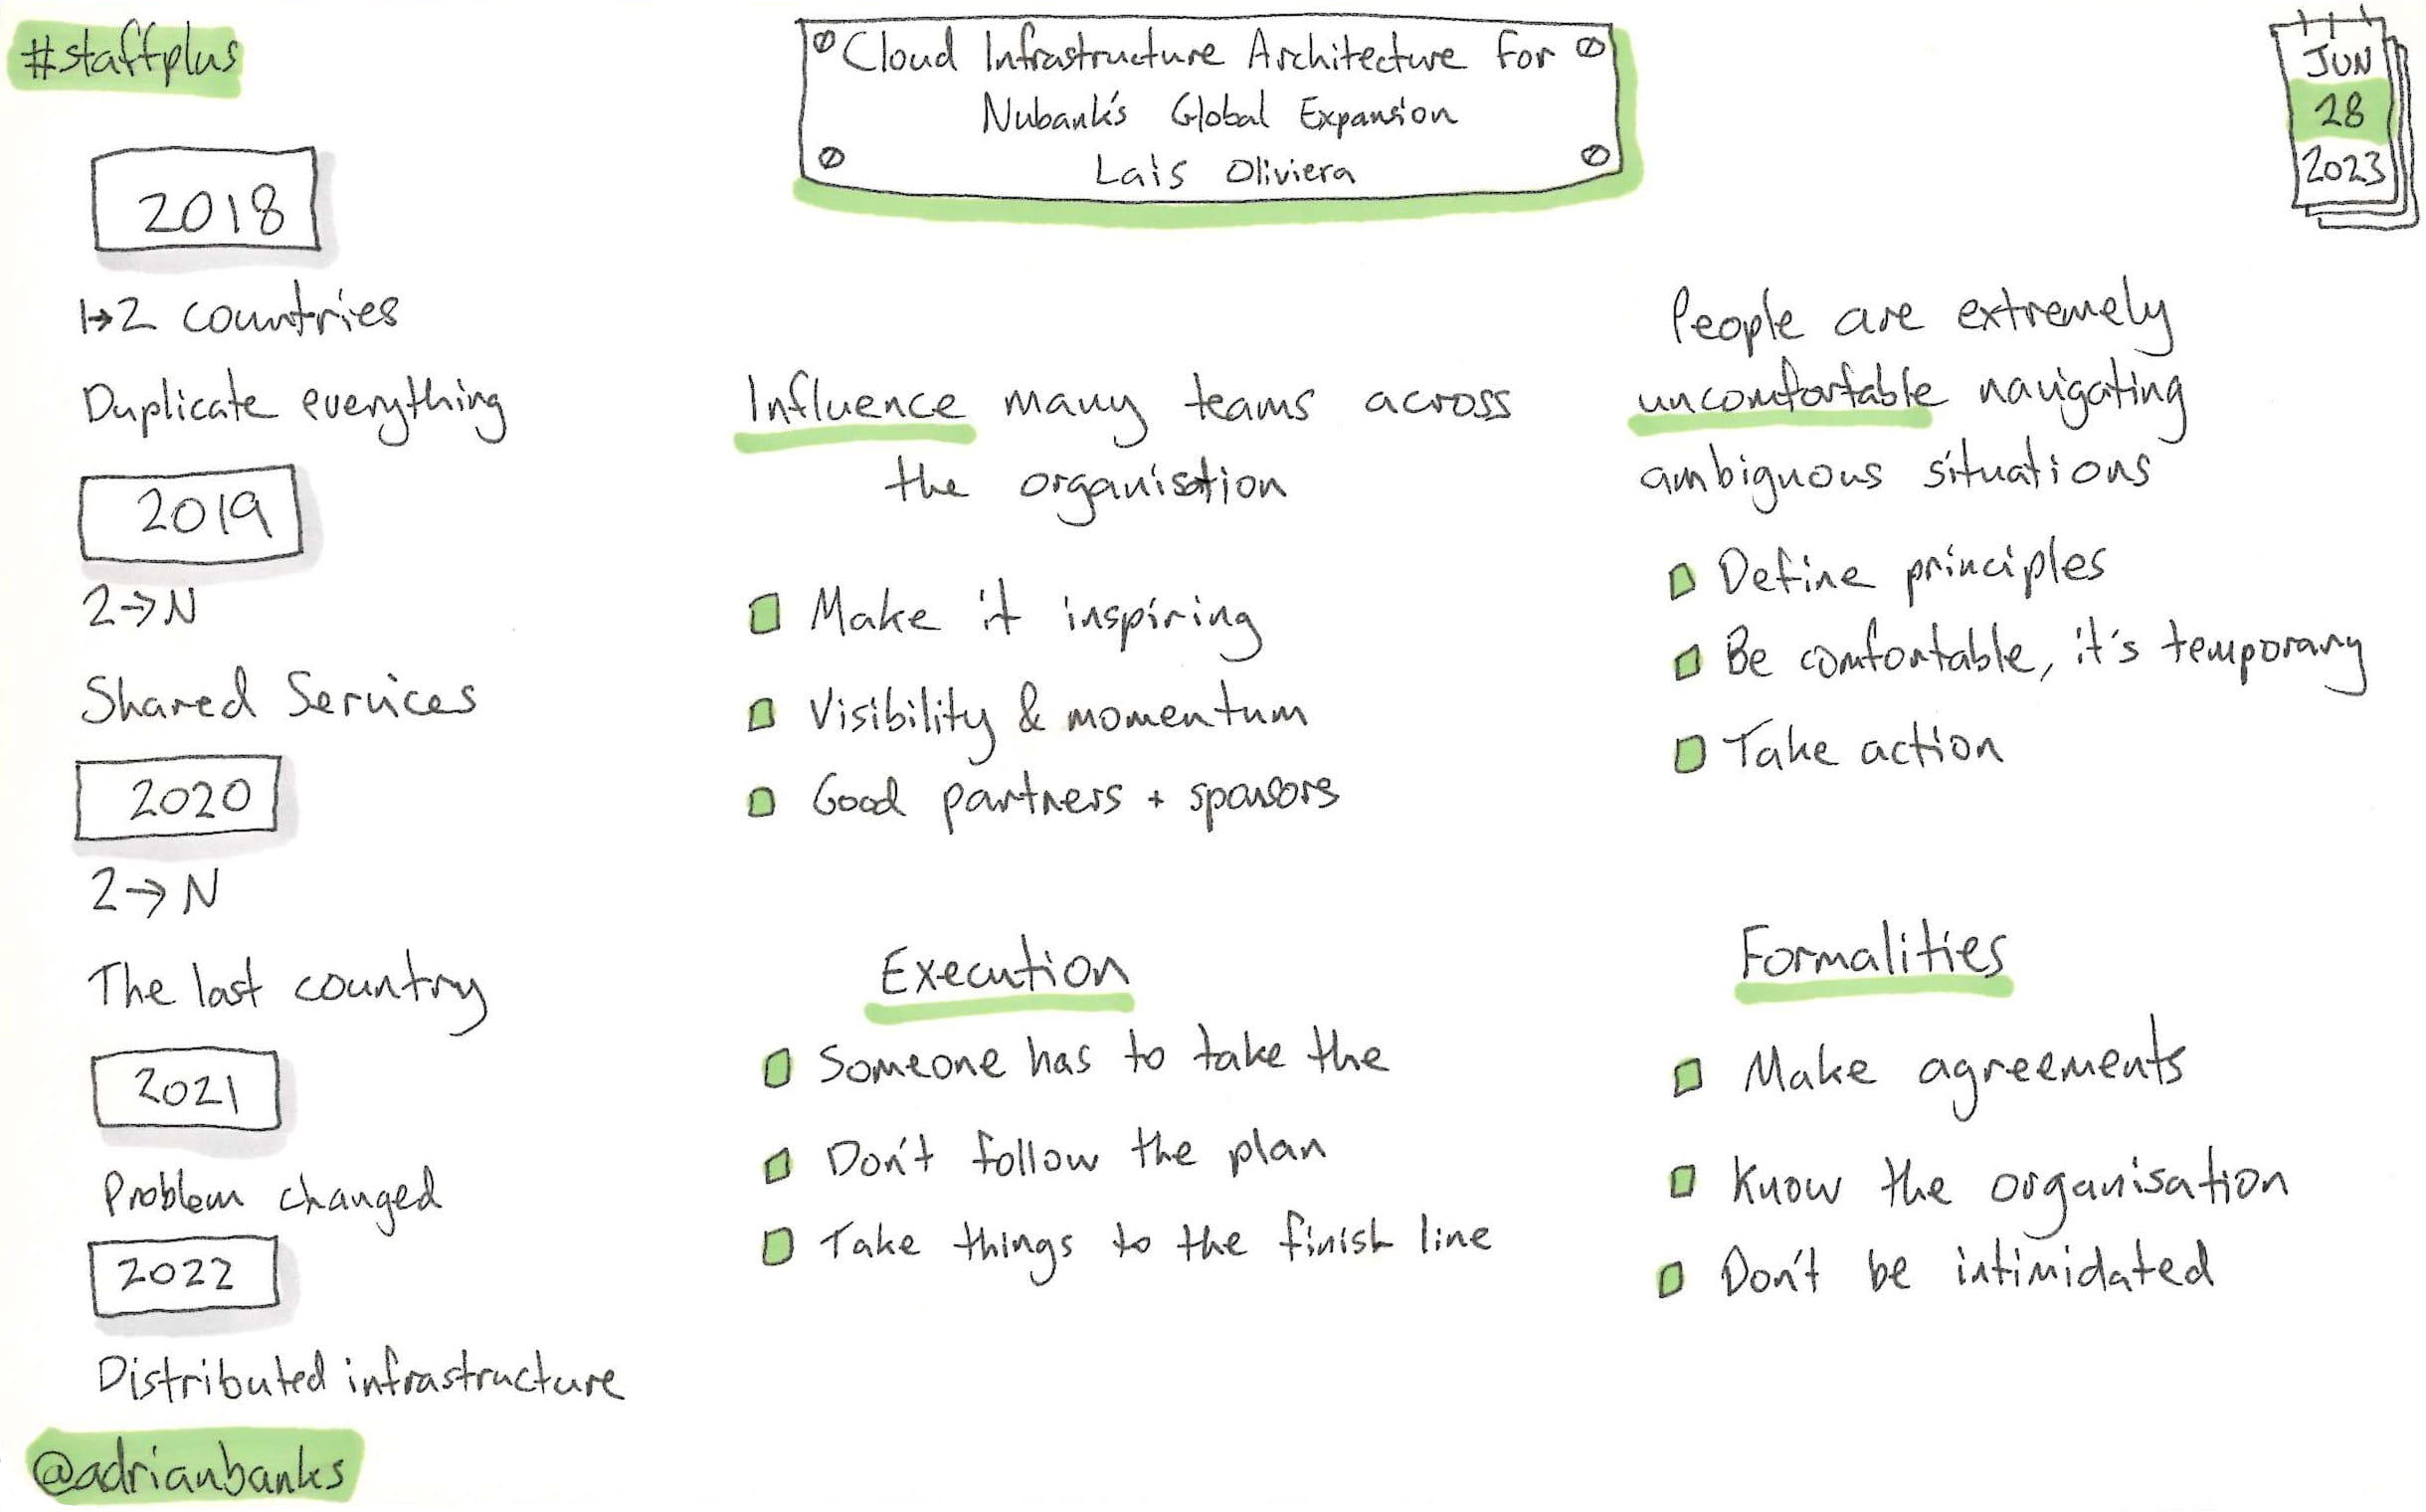 #staffplus
Cloud Infrastructure Architecture for
Nubank's Global Expansion
Lais Oliviera
JUN
28
2023
2018
1→2 countries
Duplicate everything
2019
2→N
Shared Services
2020
2→N
The last country
2021
Problem changed
2022
Distributed infrastructure
@adrianbanks
Influence many teams across
the organisation
Make it inspiring
Visibility & momentum
Good partners + sponsors
Execution
Someone has to take the
Don't follow the plan
Take things to the finish line
People are extremely
uncomfortable navigating
ambiguous situations
Define principles
Be comfortable, it's temporary
Take action
Formalities
Make agreements
Know the organisation
Don't be intimidated